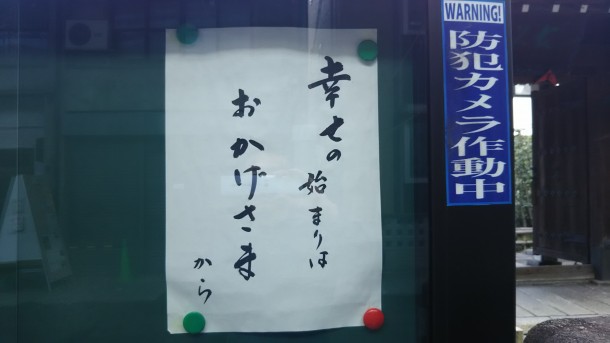 幸せの始まりは
おかげさま
から
WARNING!
防犯カメラ作動中